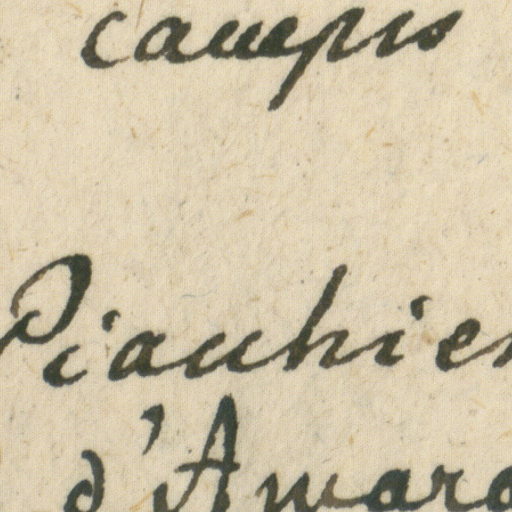 campis
Piauhien
d'Amara